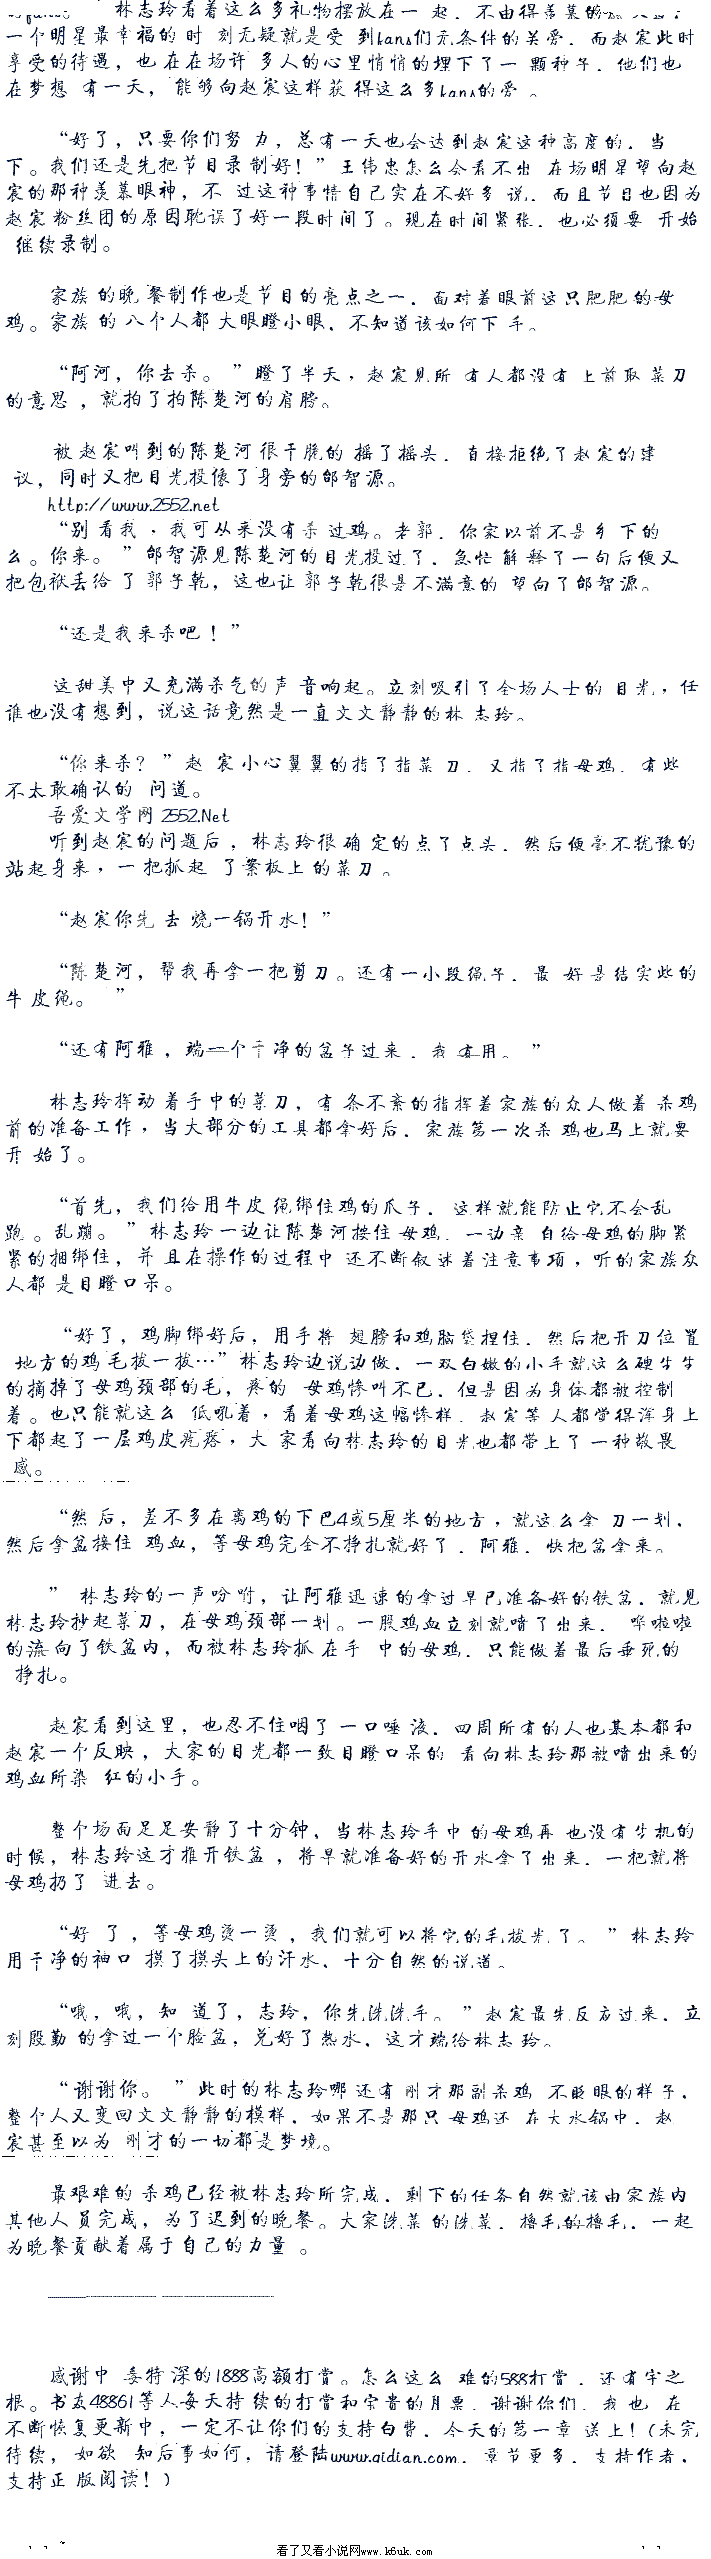 林志玲看着这么多礼物摆放在一 起，不由得羡慕的
一个明星最幸福的 时 刻无疑就是受 到fans们无条件的关爱，而赵宸此时
享受的待遇，也 在在场许 多人的心里悄悄的埋下了一 颗种子，他们也
在梦想 有一天，能够向赵宸这样获 得这么多fans的爱 。
“好了，只要你们努 力，总有一天也会达到赵宸这种高度的，当
下。我们还是先把节目录 制好！”王伟忠怎么会看不出 在场明星望向赵
宸的那种羡慕眼神，不 过这种事情自己实在不好多 说，而且节目也因为
赵宸 粉丝团的原因耽误了好一段时间了。现在时间紧张，也必须要 开始
继续录制。
家族 的晚 餐制作也是节目的亮点之一，面对着眼前这只肥肥 的母
鸡。家族 的 八个人都 大眼瞪小眼，不知道该如何下 手。
“阿河，你去杀。 ”瞪了半天，赵宸见所 有人都没有 上前取 菜刀
的意思 ，就拍了拍陈楚河的肩膀。
被 赵宸叫到的陈楚河 很干脆的 摇了摇头，直接拒绝了赵宸的建
议，同时又把目光投像了身旁的邰智源。
http://www.2552.net
“别 看我 ，我可从来没有杀 过鸡。老郭，你家以前不是乡 下的
么。你来。 ”邰智源见陈楚河的目光投过了，急忙 解 释了一句后便又
把包袱丢给 了 郭子乾，这也让 郭子乾很是不满意的 望向了邰智源。
“还是我来杀吧 ！”
这甜美中又充满杀气的声 音响起。立刻吸引了全场人士的 目光，任
谁也没有想到，说这话竟然是一直文文静静的林 志玲。
“你来杀？ ”赵 宸小心翼翼的指了指菜 刀，又指了指母鸡，有些
不太敢确认的 问道。
吾爱文学网 2552.Net
听到赵宸的问题后 ，林志玲很 确 定的点了点头，然后便毫不犹豫的
站起身来，一把抓起 了案板上的菜刀 。
“赵宸你先 去 烧一锅开水！”
“陈 楚河，帮我再拿一把剪刀。还有一小段绳子，最 好是结实些的
牛 皮绳。 ”
“还有阿雅 ，端一个干净的盆子过来，我 有用。 ”
林志玲挥动 着手中的菜刀，有 条不紊的指挥着家族的众人做着 杀鸡
前的准备工作，当大部分的工具都拿好后，家族第一次杀 鸡也马上就要
开 始了。
“首先，我们给用牛皮 绳绑住鸡的爪子，这样就能防止它不会乱
跑 。乱蹦。 ”林志玲一边让陈楚河按住 母鸡，一边亲 自给母鸡的脚紧
紧的捆绑住，并 且在操作的过程中 还不断叙 述着注意事项，听的家族众
人都 是目瞪口呆。
“好了，鸡脚绑好后，用手将 翅膀和鸡脑袋捏住，然后把开刀位 置
地方的鸡 毛拔一拔…”林志玲边说边做，一双白嫩的小手就这么硬生生
的摘掉了母鸡颈部的毛，疼的 母鸡惨叫不已，但是因为身体都被控制
着。也只能就这么 低吼着，看着母鸡这幅惨样，赵宸等 人都觉得浑身上
下都起了一层鸡皮疙瘩，大 家看向林志玲的目光也都带上了 一种敬畏
感。
“然 后，差不多在离鸡的下巴4或5厘米的地方，就这么拿 刀一划，
然后拿盆接住 鸡血，等母鸡完全不挣扎就好了，阿雅，快把盆拿来。
” 林志玲的一声吩咐，让阿雅迅 速的拿过早已准备好的铁盆，就见
林志玲抄起菜刀，在母鸡颈部一划。一股鸡血立刻就喷了出来， 哗啦啦
的流向了铁盆内，而被林志玲抓 在手 中的母鸡，只能做着最后垂死的
挣扎。
赵宸看到这里，也忍不住咽了 一口唾 液，四周所有的人也基本都和
赵宸一个反映，大家的目光都一致目瞪口呆的 看向林志玲那被喷出来的
鸡血所染 红的小手。
整个场面足足安静了十分钟，当林志玲手中 的母鸡再 也没有生机的
时候，林志玲这才推开铁盆 ，将早就准备好的开水拿了出来，一把就将
母鸡扔了 进去。
“好 了，等母鸡烫一烫，我们就可以将它的毛拔光了。 ”林志玲
用干净的袖口 摸了摸头上的汗水，十分自然的说道。
“哦，哦，知 道了，志玲，你先洗洗手。 ”赵宸最先反应过来，立
刻殷勤 的拿过一个脸盆，兑好了热水，这才端给林志 玲。
“谢谢你。 ”此时的林志玲哪 还有 刚才那副杀鸡 不眨眼的样子，
整个人又变回文文静静的模样，如果不是那只 母鸡还 在大水锅中，赵
宸甚至以为 刚才的一切都是梦境。
最艰难的 杀鸡已经被林志玲所完成，剩下的任务自然就该由家族内
其他人 员完成，为了迟到的晚餐。大家洗菜 的洗菜，撸毛的撸毛，一起
为晚餐贡献着属于自己的力量 。
感谢中 委特深的1888高额打赏。怎么这么 难的588打赏，还有宇之
根。书友48861等人每天持 续的打赏和宝贵的月票，谢谢你们，我 也 在
不断恢复更新中，一定不让你们的支持白费，今天的第一章 送上！(未完
待续，如欲 知后事如何，请登陆www.qidian.com，章节更多，支持作者，
支持正 版阅读！)
看了又看小说网www.k6uk.com